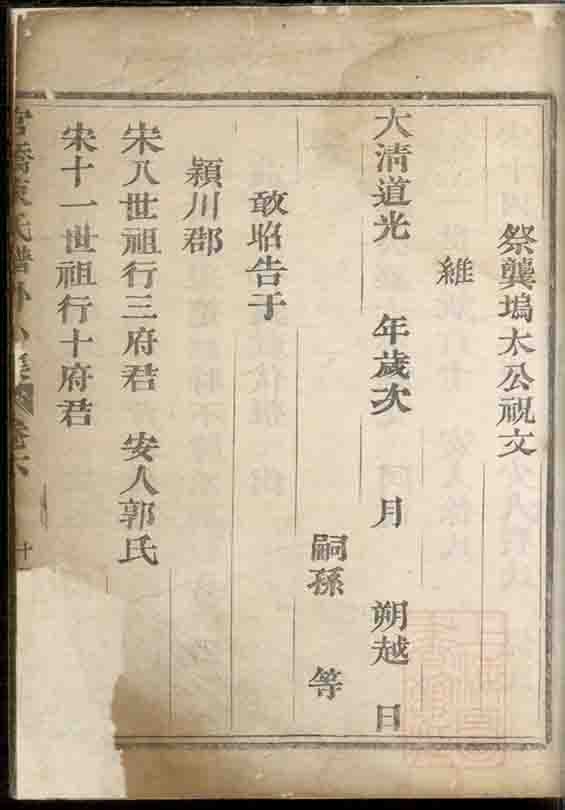 祭龔塢太公祝文
維
大清道光 年歲次 月 朔越 日
嗣孫 等
敢昭告于
潁川郡
宋八世祖行三府君 安人郭氏
宋十一世祖行十府君
氏譜外 卷六 十